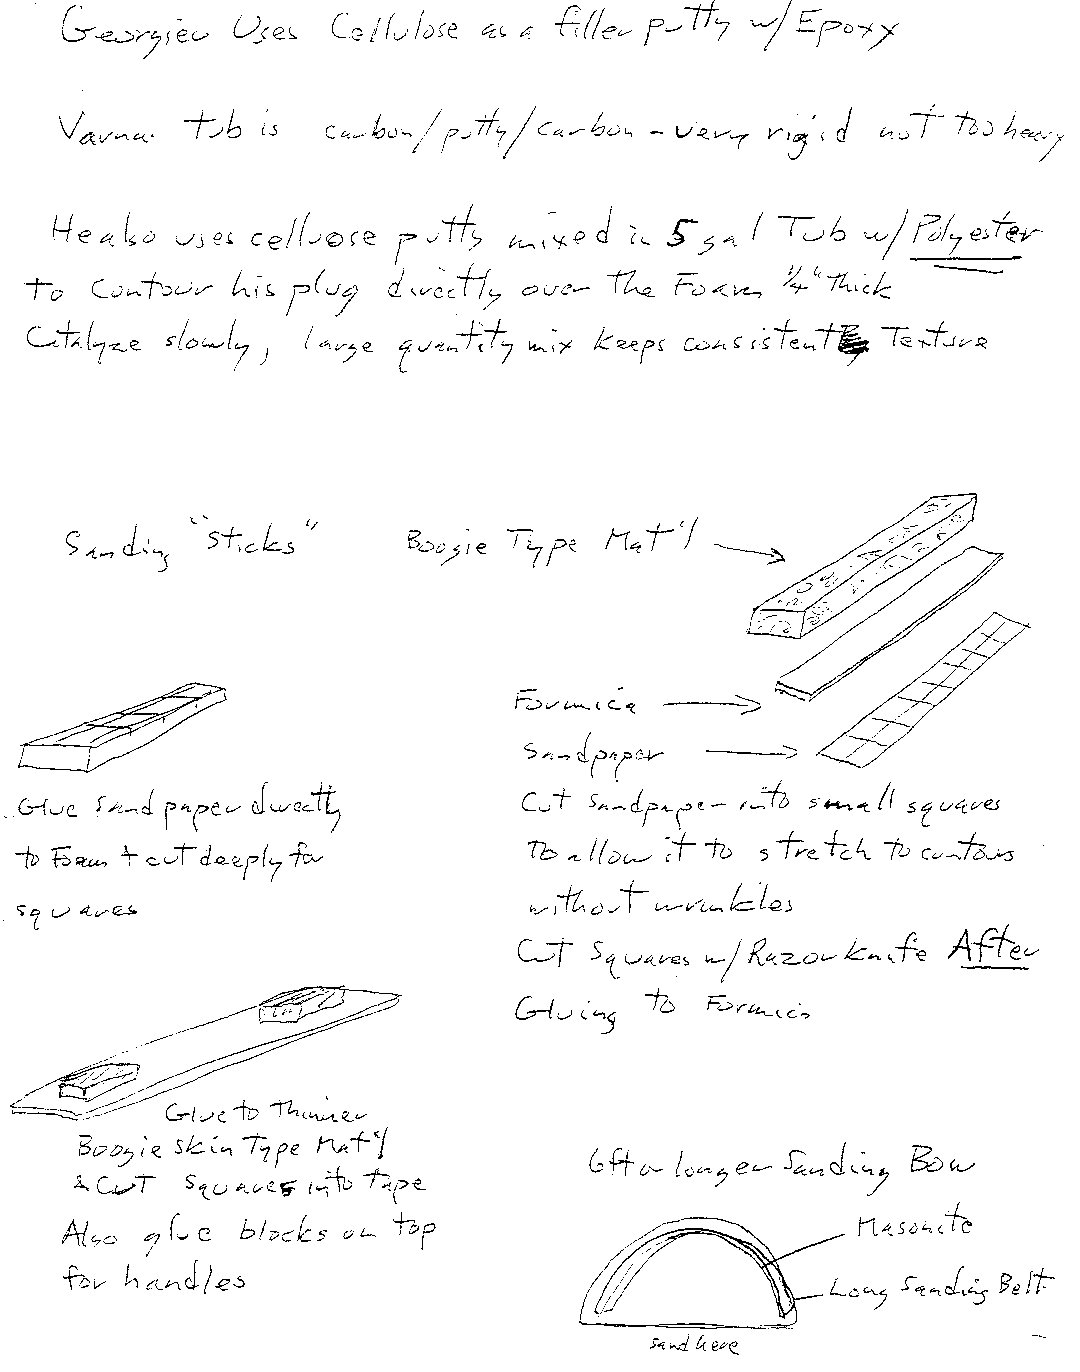 Georgiev Uses Cellulose as a filler putty w/ Epoxy
Varna tub is carbon/putty/carbon - very rigid not too heavy
He also uses celluose putty mixed in 5 gal Tub w/ Polyester
to contour his plug directly over the Foam 1/4" thick
Catalyze slowly, large quantity mix keeps consistent Texture
Sanding "sticks"
Boogie Type Mat'l
Formica
Sandpaper
Glue sandpaper directly
to Foam + cut deeply for
squares
Cut sandpaper into small squares
to allow it to stretch to contours
without wrinkles
Cut squares w/ Razor knife After
Gluing to Formica
Glue to Thinner
Boogie skin Type Mat'l
& Cut squares into tape
Also glue blocks on top
for handles
6ft or longer Sanding Bow
Masonite
Long Sanding Belt
sand here